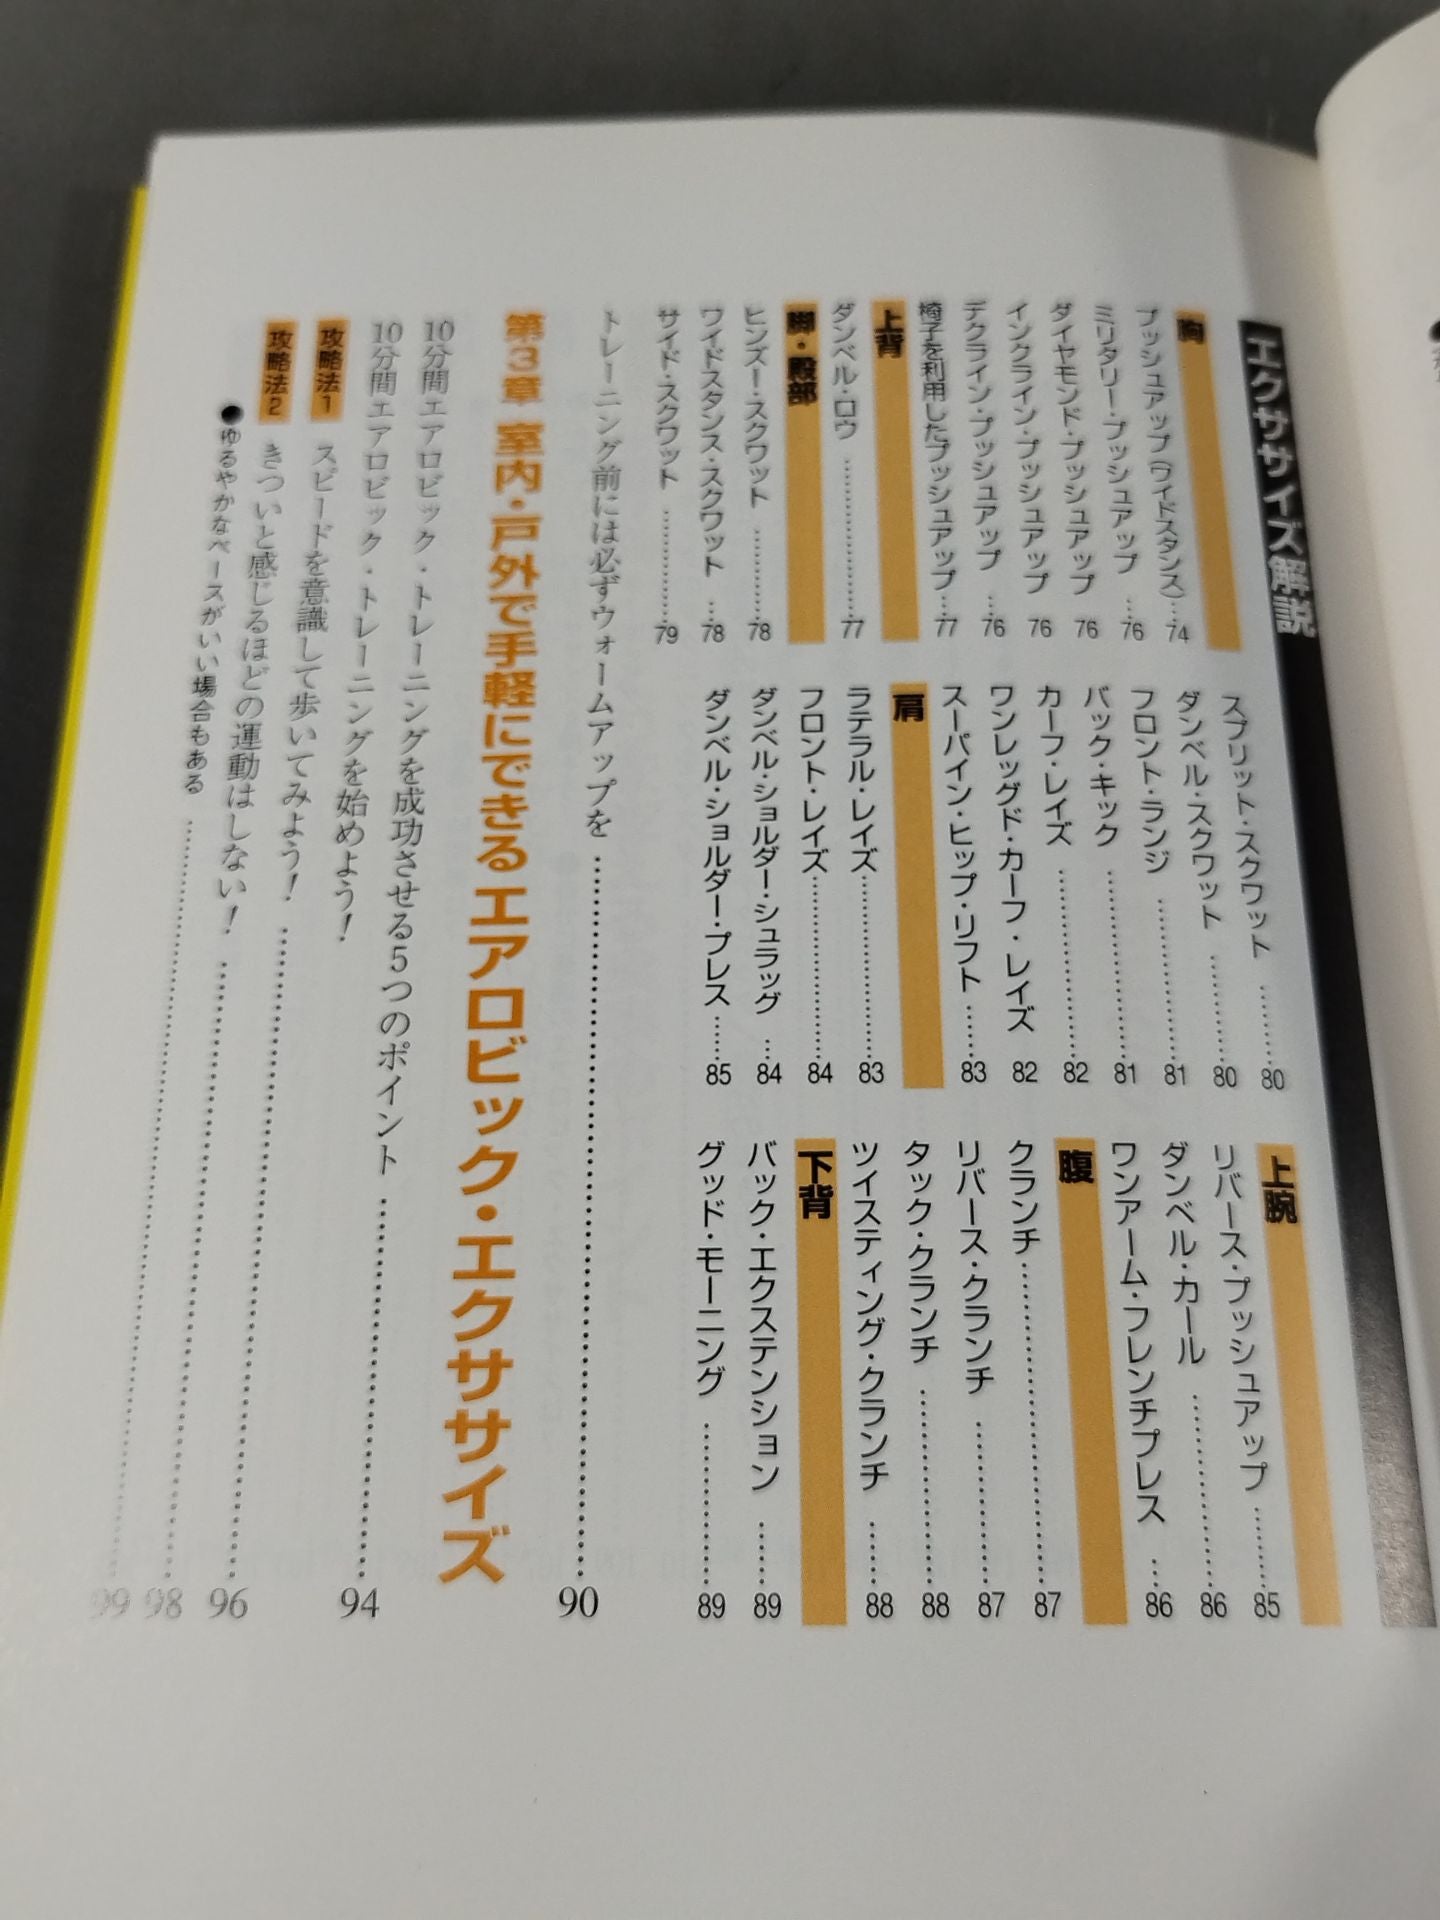 エクササイズ解説
胸
プッシュアップ(ワイドスタンス)…74
ミリタリー・プッシュアップ …76
ダイヤモンド・プッシュアップ 76
インクライン・プッシュアップ 76
デクライン・プッシュアップ …76
椅子を利用したプッシュアップ…77
上背
ダンベル・ロウ ………………77
脚・殿部
ヒンズー・スクワット …………78
ワイドスタンス・スクワット …78
サイド・スクワット ……………79
スプリット・スクワット …………80
ダンベル・スクワット ……………80
フロント・ランジ …………………81
バック・キック ……………………81
カーフ・レイズ ……………………82
ワンレッグド・カーフ・レイズ 82
スーパイン・ヒップ・リフト ……83
肩
ラテラル・レイズ…………………83
フロント・レイズ…………………84
ダンベル・ショルダー・シュラッグ …84
ダンベル・ショルダー・プレス ……85
上腕
リバース・プッシュアップ ………85
ダンベル・カール …………………86
ワンアーム・フレンチプレス …86
腹
クランチ……………………………87
リバース・クランチ ………………87
タック・クランチ …………………88
ツイスティング・クランチ ………88
下背
バック・エクステンション ………89
グッド・モーニング ………………89
トレーニング前には必ずウォームアップを……………………90
第3章 室内・戸外で手軽にできるエアロビック・エクササイズ
10分間エアロビック・トレーニングを成功させる5つのポイント……………94
10分間エアロビック・トレーニングを始めよう!……………………96
攻略法1 スピードを意識して歩いてみよう!……………………98
攻略法2 きついと感じるほどの運動はしない!……………………99
●ゆるやかなペースがいい場合もある……………………